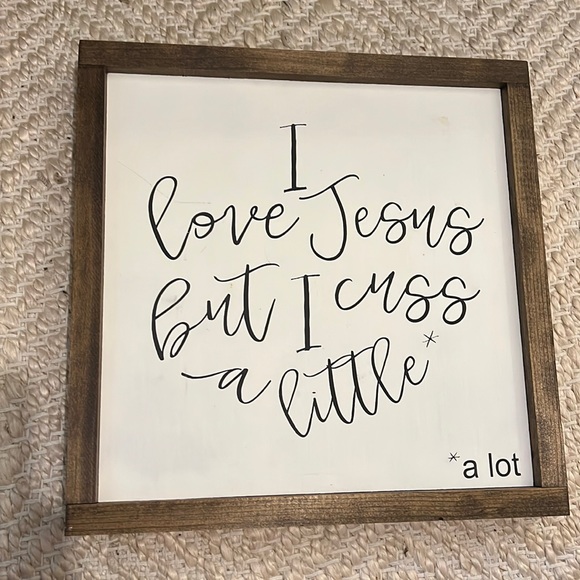 I
love Jesus
but I cuss
a little*
*a lot